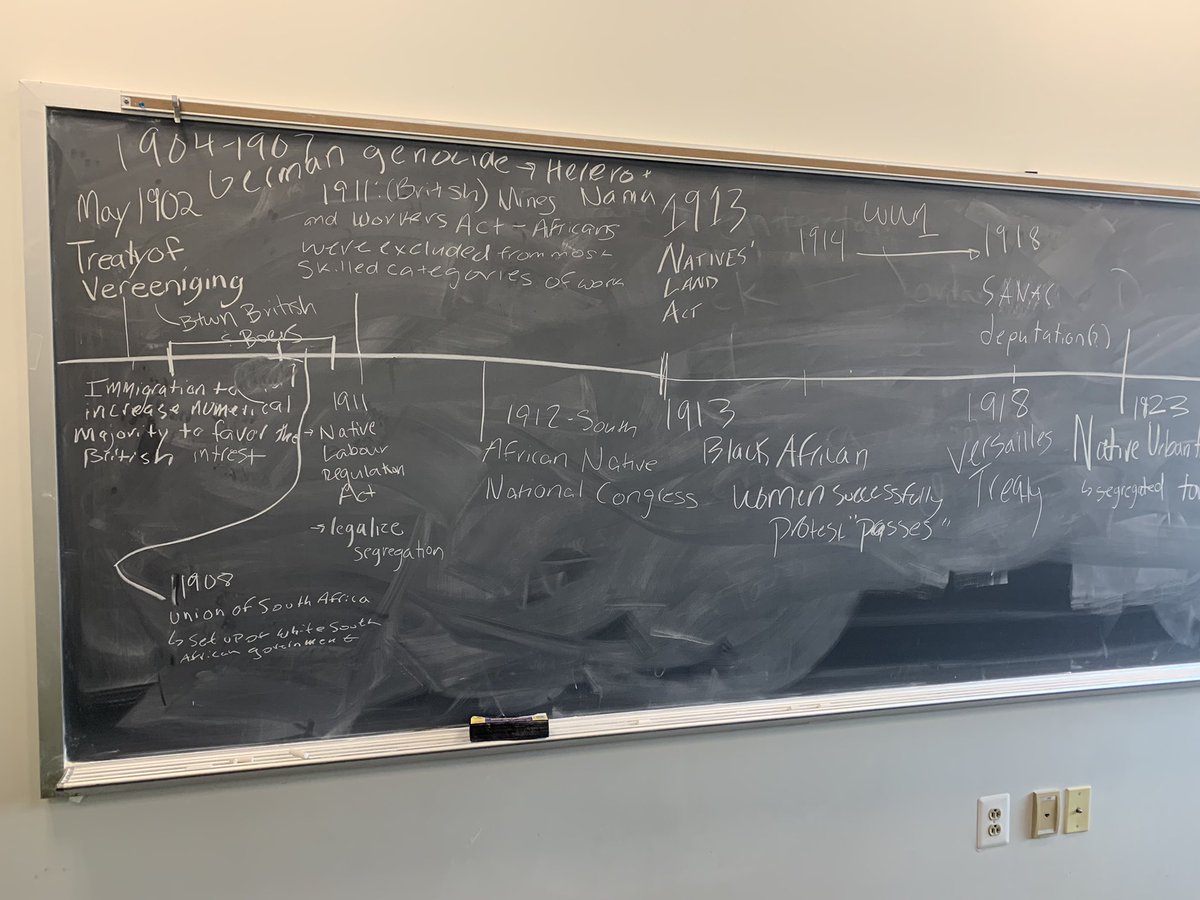 1904-1907
German genocide → Herero +
Nama
May 1902
Treaty of
Vereeniging
Btwn British
Boers
1911: (British) Mines
and Workers Act - Africans
were excluded from most
skilled categories of work
1913
NATIVES'
LAND
ACT
1914
WW1
1918
SANAC
deputation(?)
Immigration to
increase numerical
majority to favor the
British intrest
1911
→ Native
Labour
regulation
Act
→ legalize
segregation
1908
Union of South Africa
↳ set up of white South
African government
1912-South
African Native
National Congress
1913
Black African
women successfully
protest "passes"
1918
Versailles
Treaty
1923
Native Urban
↳ segregated to